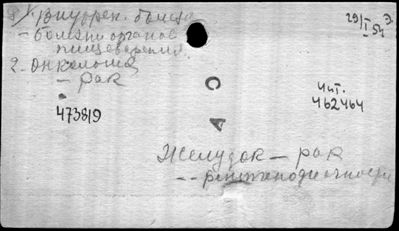 1) Внутрен. болезни
- болезни органов
пищеварения
2. Онкология
- рак
473819
29/I 54
СА
Чит.
462464
Желудок - рак
-- рентгенодиагностика